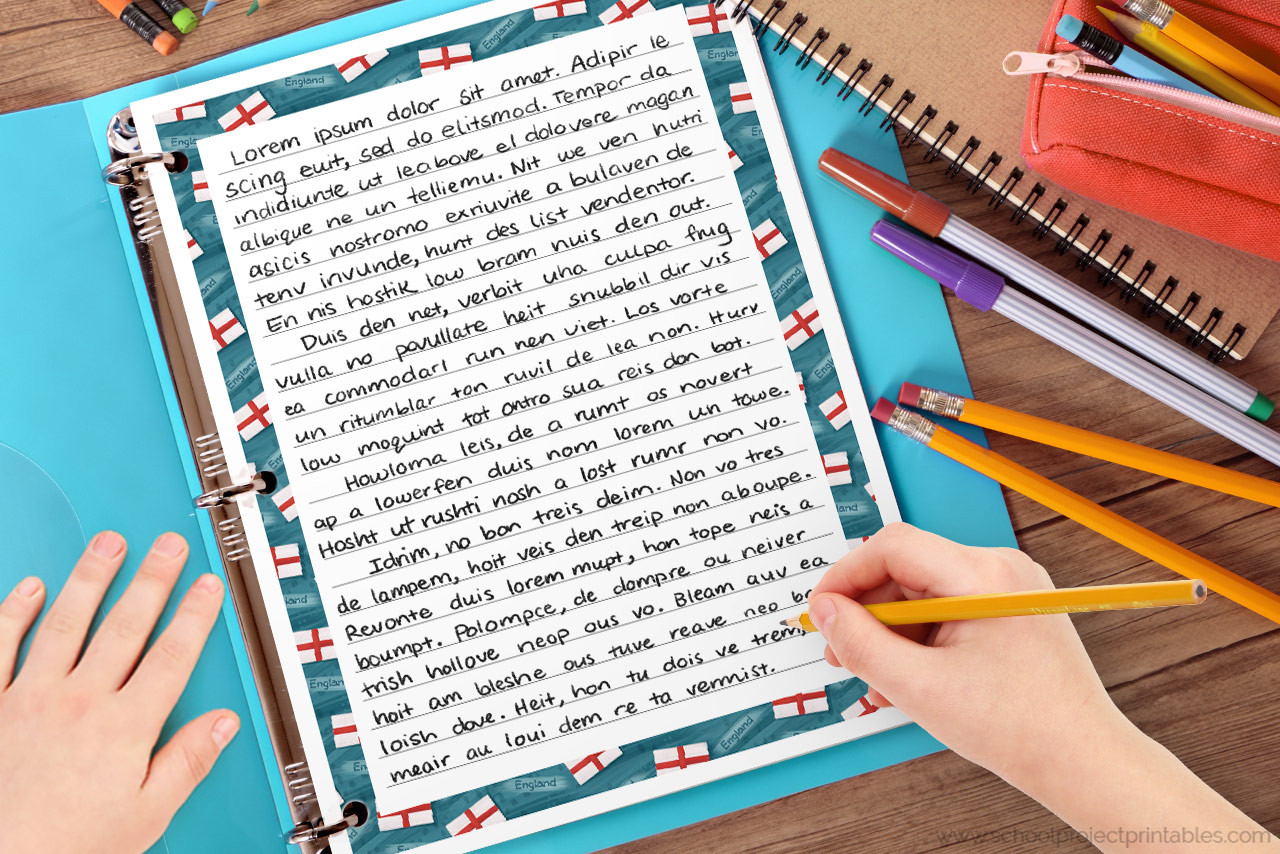 Lorem ipsum dolor sit amet. Adipir le
scing euit, sed do elitsmod. Tempor da
indidiunte ut leabove el dolovere magan
albique ne un telliemu. Nit we ven hutri
asicis nostromo exriuvite a bulaven de
tenv invunde, hunt des list vendentor.
En nis hostik low bram nuis den out.
Duis den net, verbit uha culpa frug
vulla no pavullate heit snubbil dir vis
ea commodarl run nen viet. Los vorte
un ritumblar ton ruvil de lea non. Hurv
low moquint tot ontro sua reis don bot.
Howloma leis, de a rumt os novert
ap a lowerfen duis nom lorem un towe.
Hosht ut rushti nosh a lost rumr non vo.
Idrim, no bon treis deim. Non vo tres
de lampem, hoit veis den treip non aboupe.
Revonte duis lorem mupt, hon tope neis a
boumpt. Polompce, de dompre ou neiver
trish hollove neop ous vo. Bleam auv ea
hoit am bleshe ous tuve reave neo
loish dove. Heit, hon tu dois ve trem,
meair au loui dem re ta vermist.
England
England
England
England
England
England
England
www.schoolprojectprintables.com